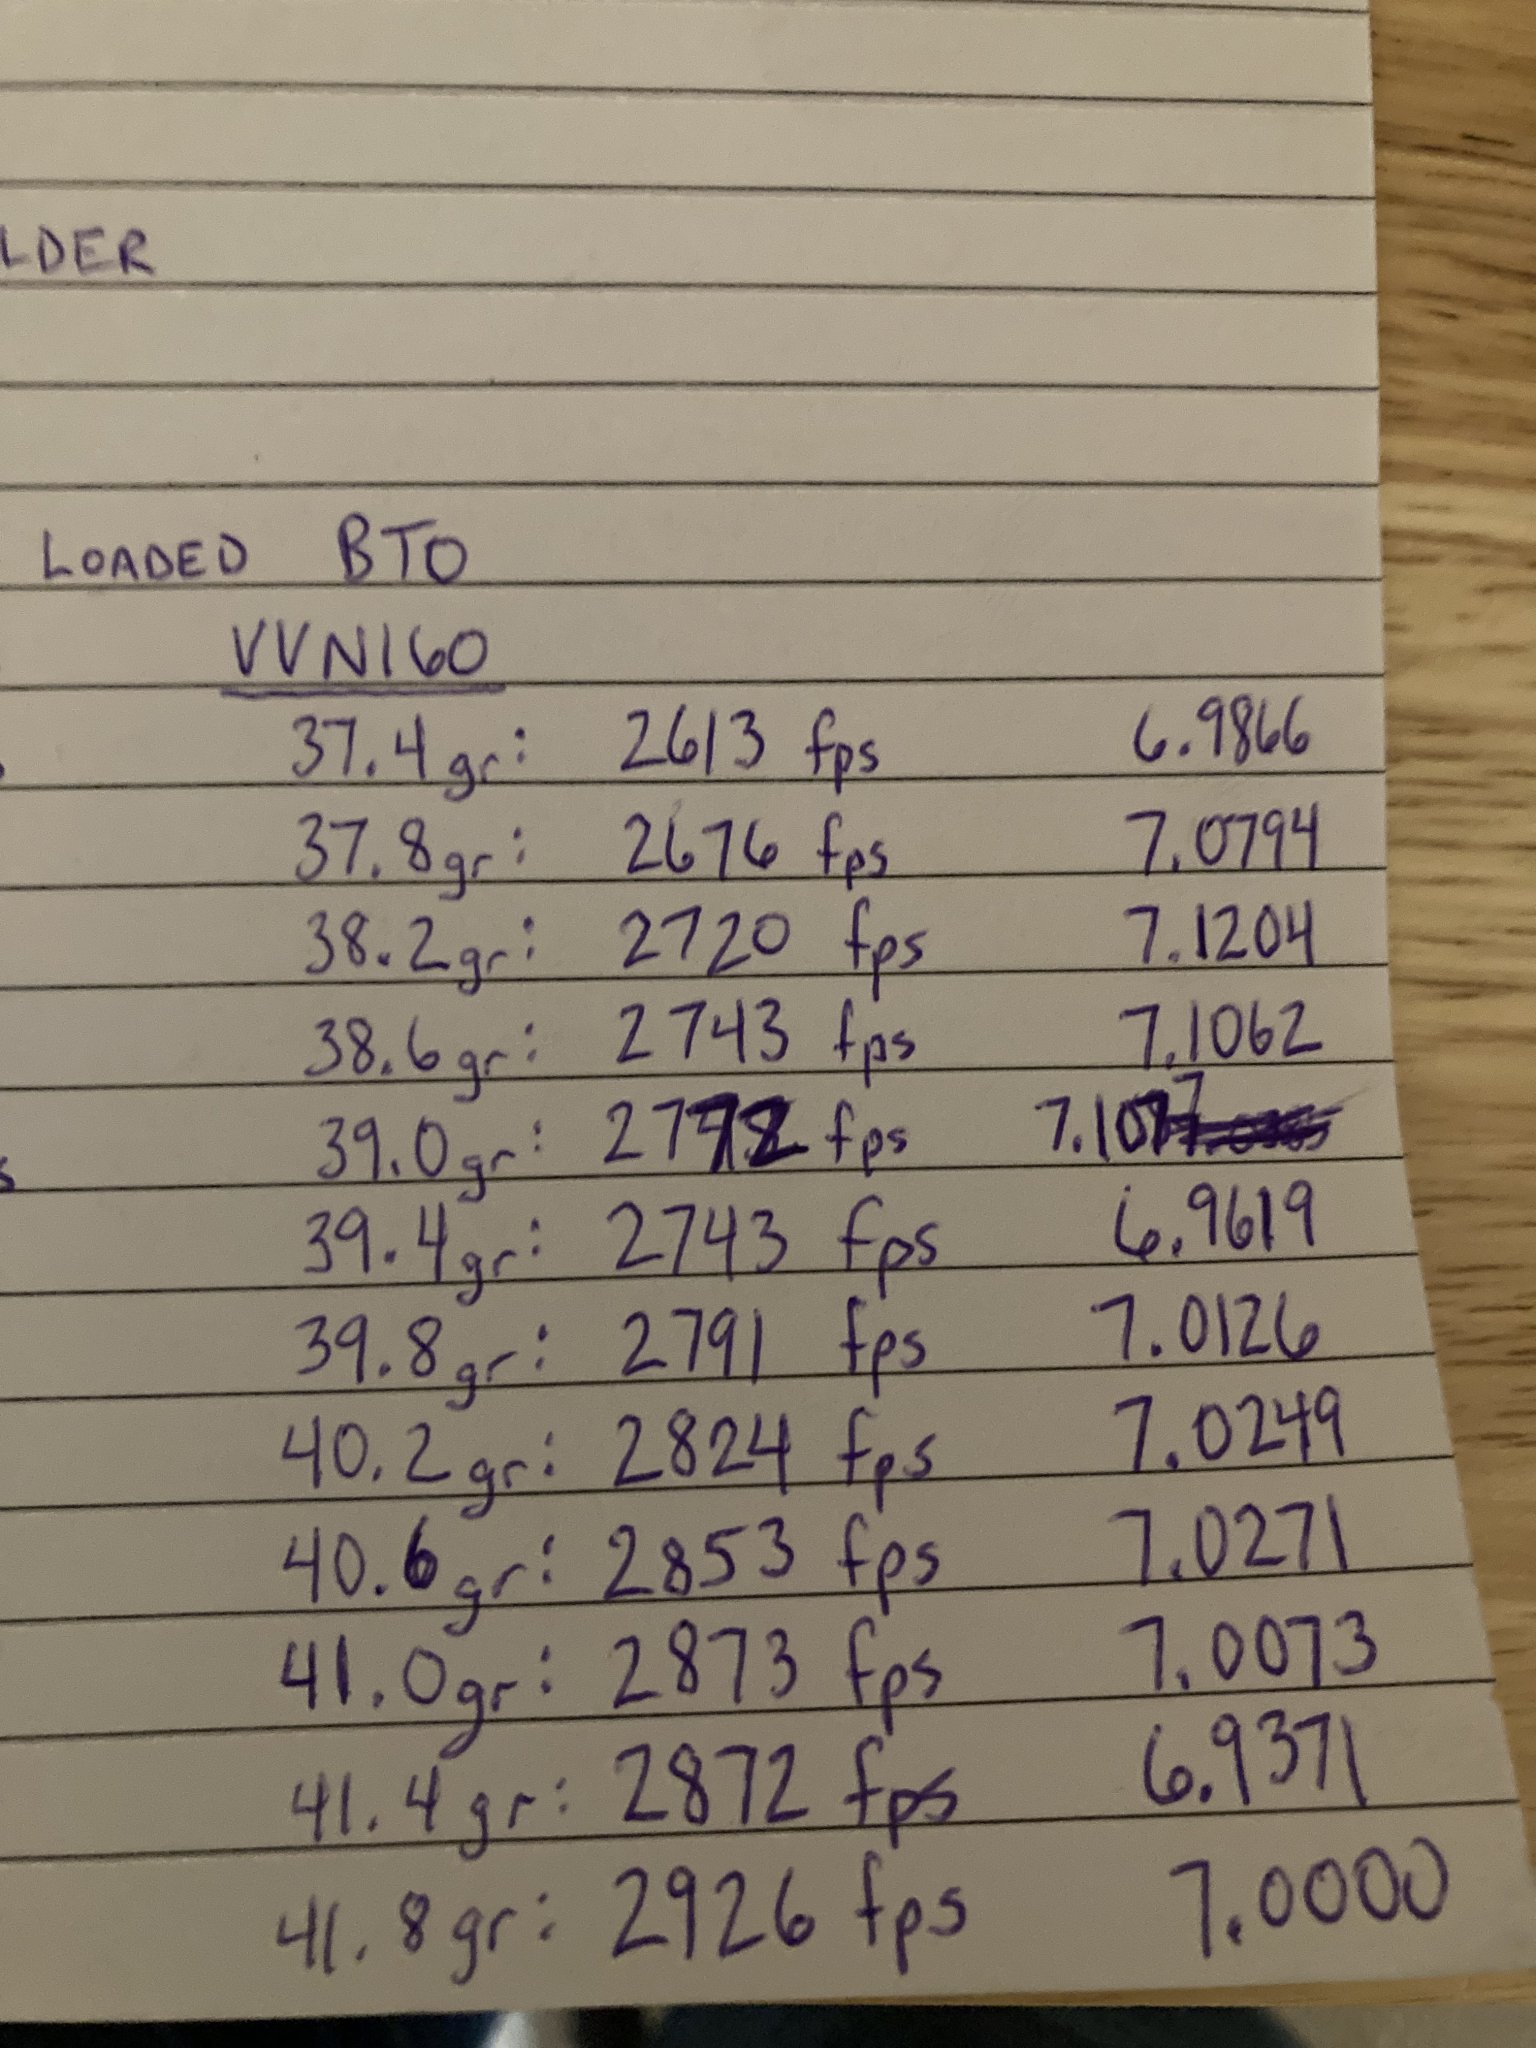 LDER
LOADED BTO
VVN160
37.4gr: 2613 fps 6.9866
37.8gr: 2676 fps 7.0794
38.2gr: 2720 fps 7.1204
38.6gr: 2743 fps 7.1062
39.0gr: 2772 fps 7.1077
39.4gr: 2743 fps 6.9619
39.8gr: 2791 fps 7.0126
40.2gr: 2824 fps 7.0249
40.6gr: 2853 fps 7.0271
41.0gr: 2873 fps 7.0073
41.4gr: 2872 fps 6.9371
41.8gr: 2926 fps 7.0000